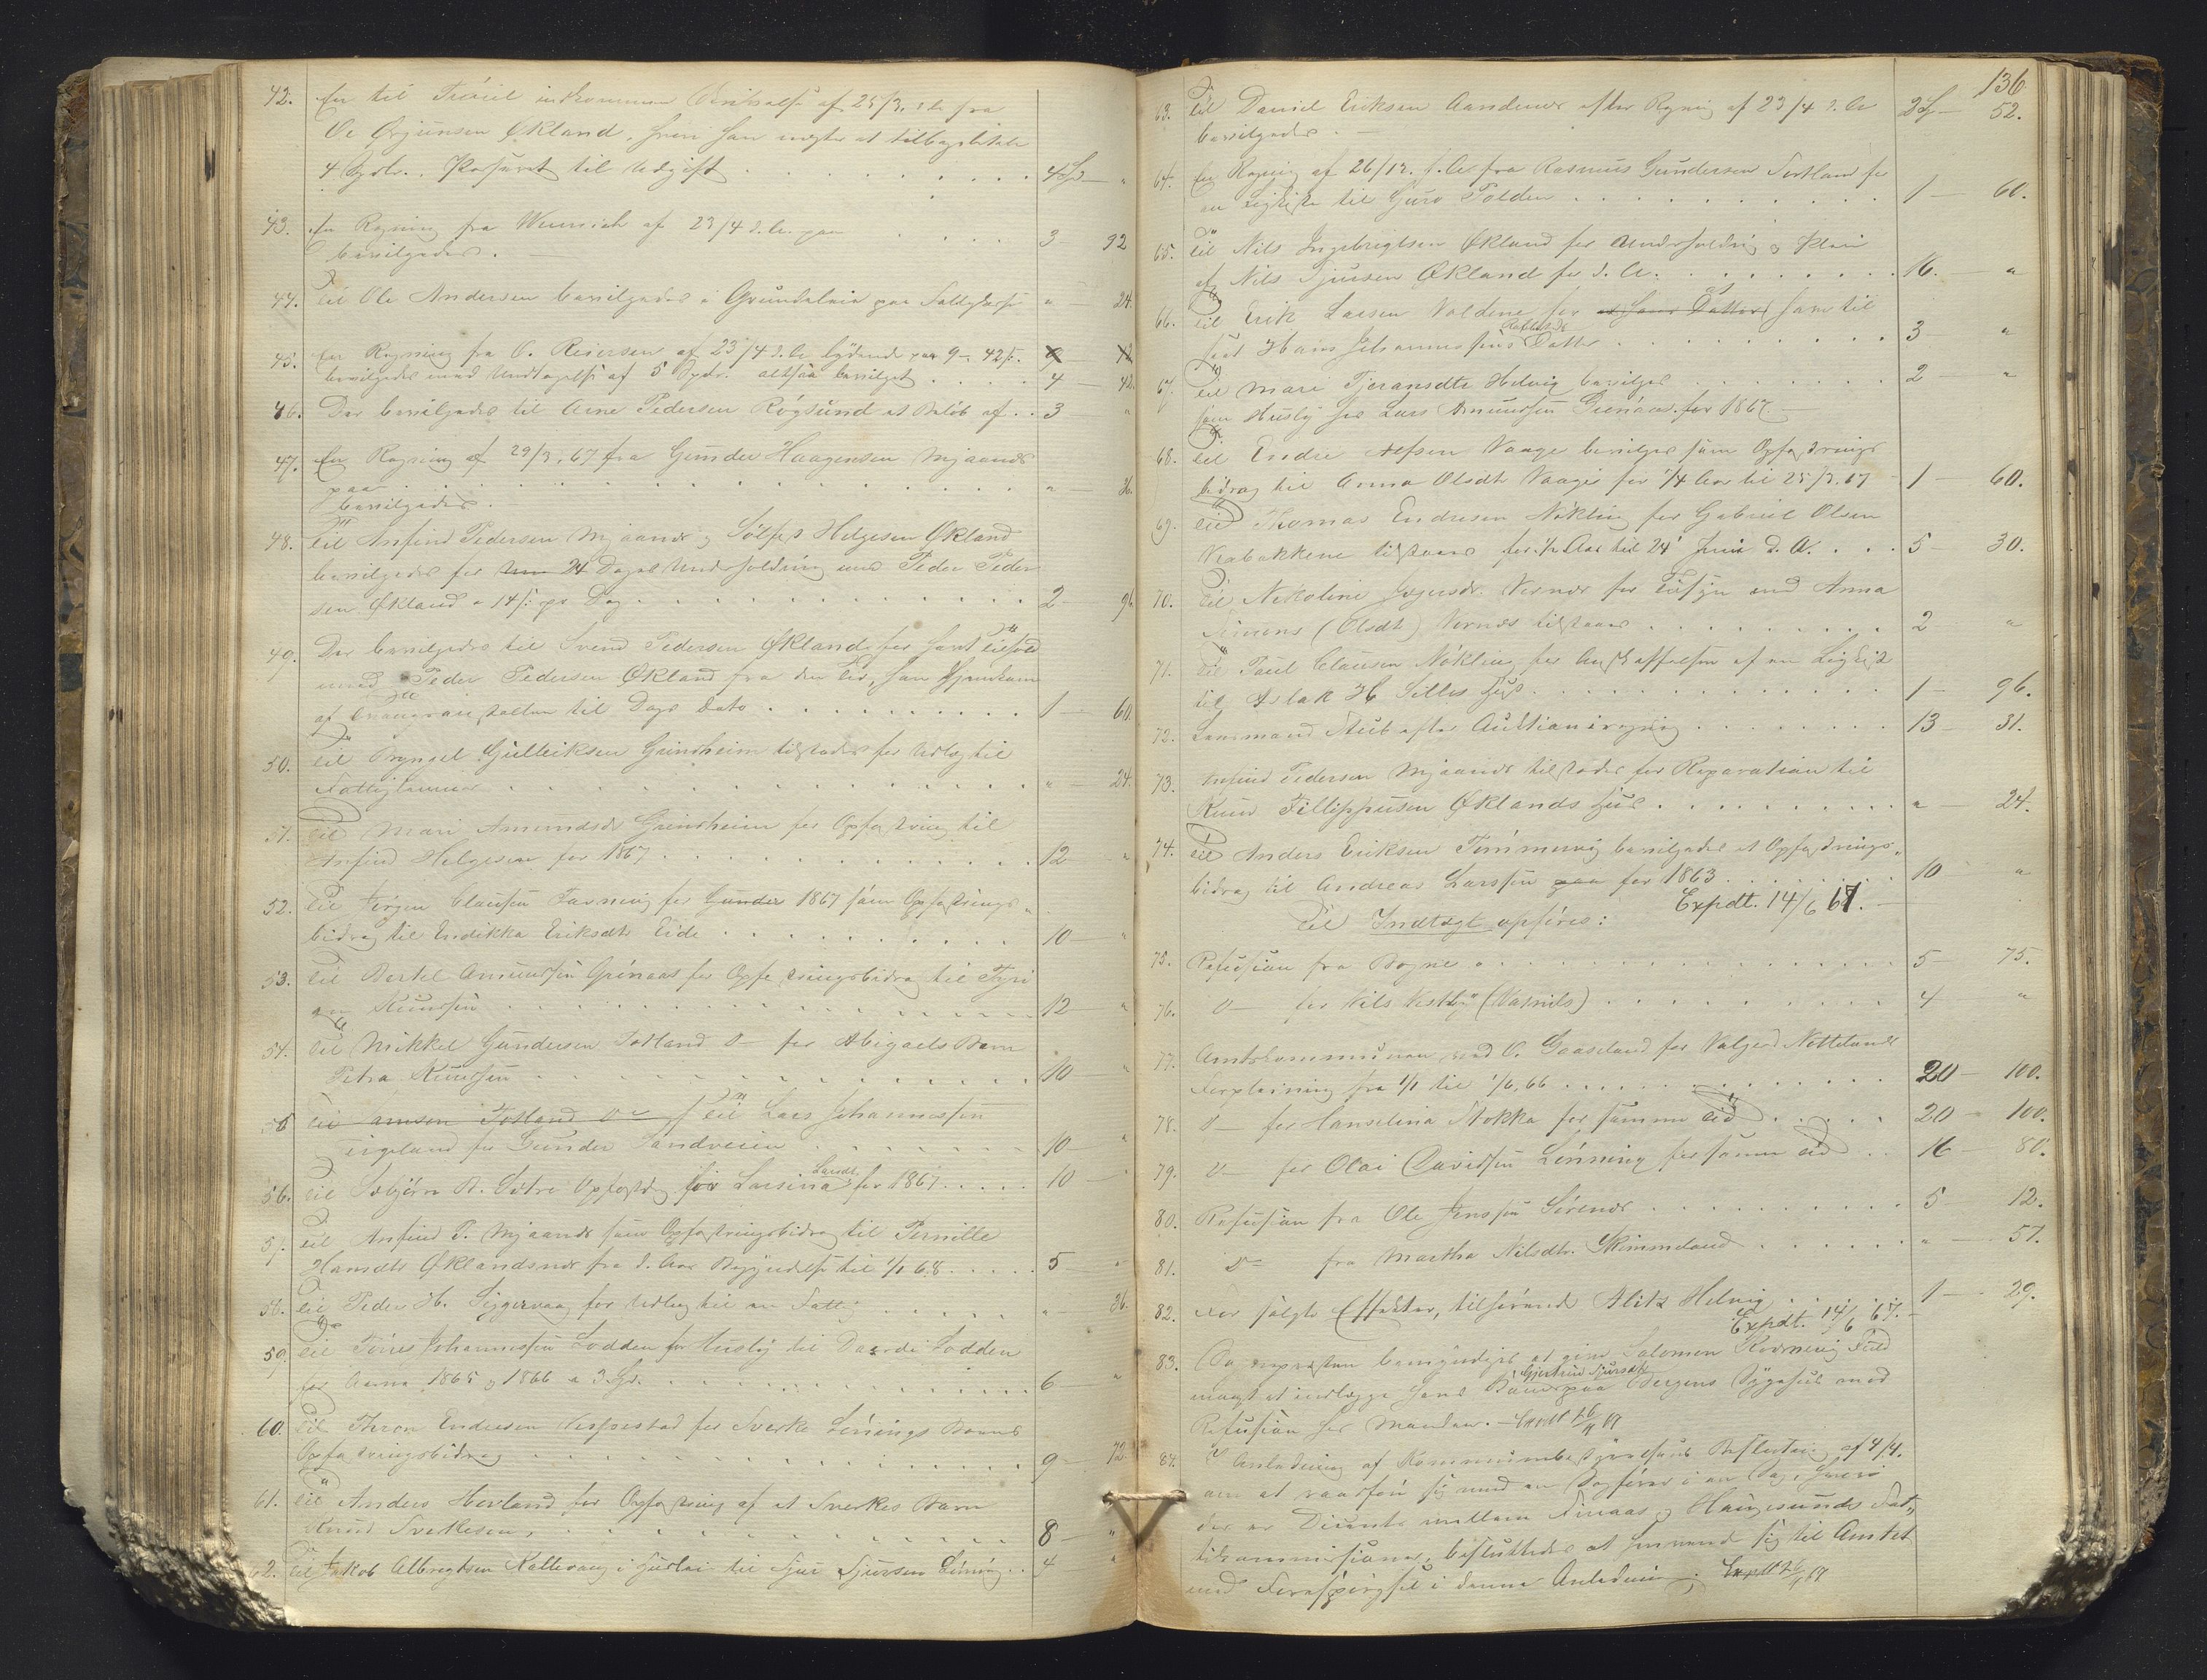 42. En til indkommen af 25/3. d. A. fra
Ole Ørjansen Økland, hvori han negter at tilbagebetale
4 Spdlr. Passeret til Udgift . . . 4 Spd — "
43. En Regning fra Wennich af 23/4 d. A. paa . . . 3 — 92
bevilgedes. —
44. Til Ole Andersen bevilgedes i Grundeleie paa . . . " — 24
45. En Regning fra O. Reiersen af 23/4 d. A. lydende paa 9 — 42 ß.
bevilgedes med Undtagelse af 5 Spdr. altsaa bevilget . . . 4 — 42.
46. Der bevilgedes til Arne Pedersen Røgsund et Beløb af . . 3 "
47. En Regning af 29/3. 67 fra Gunder Haagensen Mjaanes
paa . . . " — 36.
bevilgedes. —
48. Til Anfind Pedersen Mjaanes og Helgesen Økland
bevilgedes for 24 Dages Underholdning med Peder Peder-
sen Økland a 14 ß: pr Dag . . . 2 — 96.
49. Der bevilgedes til Svend Pedersen Økland for havt Tilhold
med Peder Pedersen Økland fra den Tid, han Hjemkom
af til Dags Dato . . . 1 — 60.
50. Til Brynjel Gulleiksen Grindheim tilstodes for Udlæg til
Fattiglemmer . . . " — 24.
51. Til Mari Amundsdr Grindheim for Opfostring til
Anfind Helgesen for 1867 . . . 12 — "
52. Til Jørgen Clausen for 1867 som Opfostrings-
bidrag til Endikka Eriksdtr Eide . . . 10 — "
53. Til Bertel Amundsen Grønaas for Opfostringsbidrag til
Knudsen . . . 12 — "
54. Til Mikkel Gundersen Totland D— for Abigaels Barn
Petra Knudsen . . . 10 — "
55 Til Lars Johannessen
for Gunder Sandveien . . . 10 — "
56. Til B. Sætre Opfostrg for Larsina Larsdtr for 1867 . . . 10 —
57. Til Anfind P. Mjaanes som Opfostringsbidrag til Pernille
Hansdtr Øklandsnes fra d. Aars Begyndelse til 1/1 68 . . . 5 — "
58. Til Peder H. Siggervaag for Udlæg til en Fattig . . . " 36.
59. Til Tøres Johannessen Lodden for Husly til Lodden
for Aarene 1865 og 1866 a 3 Spd. . . . 6 — "
60. Til Thron Endresen Vespestad for Sverke Lønings Barns
Opfostringsbidrag . . . 9 — 72.
61. Til Anders Hovland for Opfostring af et Sverkes Barn
Knud Sverkesen, . . . 8 — "
62. Til Jakob Albregtsen Kallevaag i Husleie til Sjur Sjursen Løning . . 4 "
136
63. Til Daniel Eriksen Aandenes efter Regning af 23/4 d. A. 2 Sp — 52.
bevilgedes. —
64. En Regning af 26/12. f. A. fra Rasmus Gundersen Totland for
en Ligkiste til Guro Polden . . . 1 — 60.
65. Til Nils Ingebrigtsen Økland for Underholdning og Pleie
af Nils Sjursen Økland for d. A. . . . 16. — "
66. Til Erik Larsen Valdene for som til-
Hans Johannessens Datter . . . 3 "
67. Til Mari Tjerandsdtr Helvig bevilges . . . 2 — "
som Husly hos Lars Amundsen Grønaas for 1867 —
68. Til Endre Vaage bevilges som Opfostrings-
bidrag til Anna Olsdtr Vaage for 1/4 Aar til 25/3. 67 — 1 — 60.
69. Til Thomas Endresen Nøkling for Gabriel Olsen
Verbakkene tilstaaes for 1/2 Aar til 24' Juni d. A. . . . 5 — 30.
70. Til Nikoline Vernes for Tilsyn med Anna
Simens (Olsdtr) Vernes tilstaaes . . . 2 "
71. Til Poul Clausen Nøkling for Anskaffelsen af en Ligkiste
til Aslak H. Silles . . . 1 — 96.
72. Lensmand Stub efter Auktionsregning . . . 13 — 31.
73. Anfind Pedersen Mjaanes tilstodes for Reparation til
Knud Fillippusen Øklands Hus . . . " — 24.
74. Til Anders Eriksen Tømmervig bevilgedes et Opfostrings-
bidrag til Andreas Larssen for 1863 . . . 10 "
Expdt. 14/6 67.
Til Indtægt opføres:
75. Refusion fra Bergen . . . 5 — 75.
76. D— for Nils Vestbø (Vatnils) . . . 4 "
77. Amtskommunen ved O. Gaaseland for Valgerd Nettelands
Forpleining fra 1/1 til 1/6, 66 . . . 20 — 100.
78. D— for Hanselina Stokka for samme Tid . . . 20 — 100.
79. D— for Olai Davidsen Lønning for samme Tid . . 16 — 80.
80. Refusion fra Ole Jenssen Sørenes . . . 5 — 12.
81. D— fra Martha Nilsdtr. Skimmeland . . . " — 51.
82. For solgte Effekter, tilhørende Alits Helvig . . . 1 — 29.
Expdt. 14/6 67. —
83. Sognepresten bemyndiges at give Salomon Rovning Fuld-
Gjertrud Sjursdtr
magt at indlægge hans Barn paa Bergens Sygehus mod
Refusion hos Manden. —
84. I Anledning af Kommunebestyrelsens Beslutning af 4/4.
om at raadføre sig med en Sagfører i en Sag, hvori
der er Dissents mellem Finaas og Haugesunds Fat-
tikommissioner, besluttedes at henvende sig til Amtet
med Forespørgsel i denne Anledning;